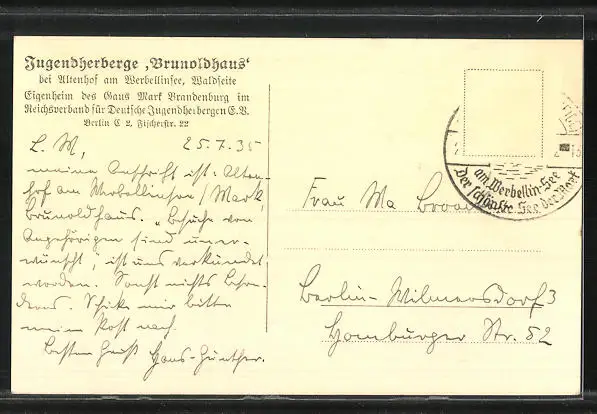 Jugendherberge ‚Brunoldhaus‘
bei Altenhof am Werbellinsee, Waldseite
Eigenheim des Gaus Mark Brandenburg im
Reichsverband für Deutsche Jugendherbergen E.V.
Berlin C 2, Fischerstr. 22
L. M, 25.7.35
meine Anschrift ist: Alten-
hof am Werbellinsee / Mark,
Brunoldhaus. „Besuche von
Angehörigen sind uner-
wünscht“, ist uns verkündet
worden. Sonst nichts Beson-
deres. Schicke mir bitte
meine Post nach.
Besten Gruß Hans-Günther.
am Werbellin-See
Der schönste See der Mark
Frau Ma
Berlin-Wilmersdorf 3
Homburger Str. 52